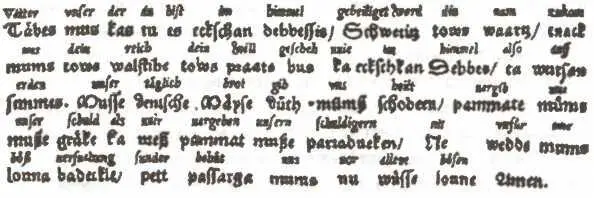 Vatter vnser der du bist im himmel geheiliget werd din nam zukom
Täbes mus kas tu es eckschan debbessis/ Schwetitz tows waartz/ enack
uns dein reich dein will gescheh wie im himmel also auff
mums tows walstibe tows praats bus ka eckschkan Debbes/ ta wursan
erden unser täglich brot gib uns heüt vergib uns
summes. Musse denische Mayse düth mums schobern/ pammate mums
unser schuld als wir vergeben unsern schuldigern nit unser
musse gräke ka mess pammat musse parradueken/ Ne wedde mums
böß versuchung sunder behüt uns vor allem bösen
louna badeckle/ pett passarga mums nu wüsse loune Amen.